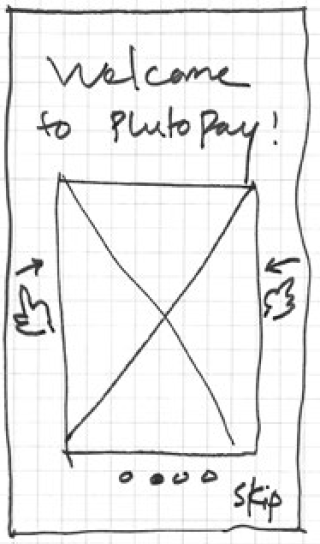 Welcome
to PlutoPay!
Skip